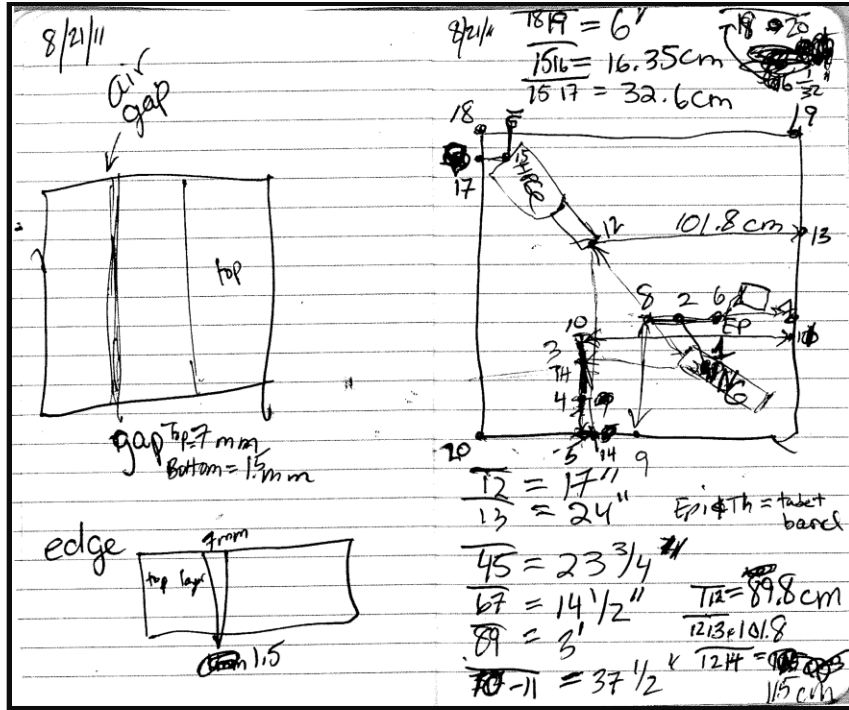 8/21/11
air
gap
top
gap Top=7mm
Bottom = 1.5mm
edge
7mm
top layer
1.5
8/21/11
1819 = 6"
1516 = 16.35cm
1517 = 32.6cm
18 20
1/32
18
19
17
15
12
101.8 cm
13
8 2 6
EP
10
3
TH
1
4
20
5
14
9
12 = 17"
13 = 24"
Epi & Th =
45 = 23 3/4"
67 = 14 1/2"
89 = 3'
10-11 = 37 1/2"
112 = 89.8 cm
1213 = 101.8
1214 =
115 cm